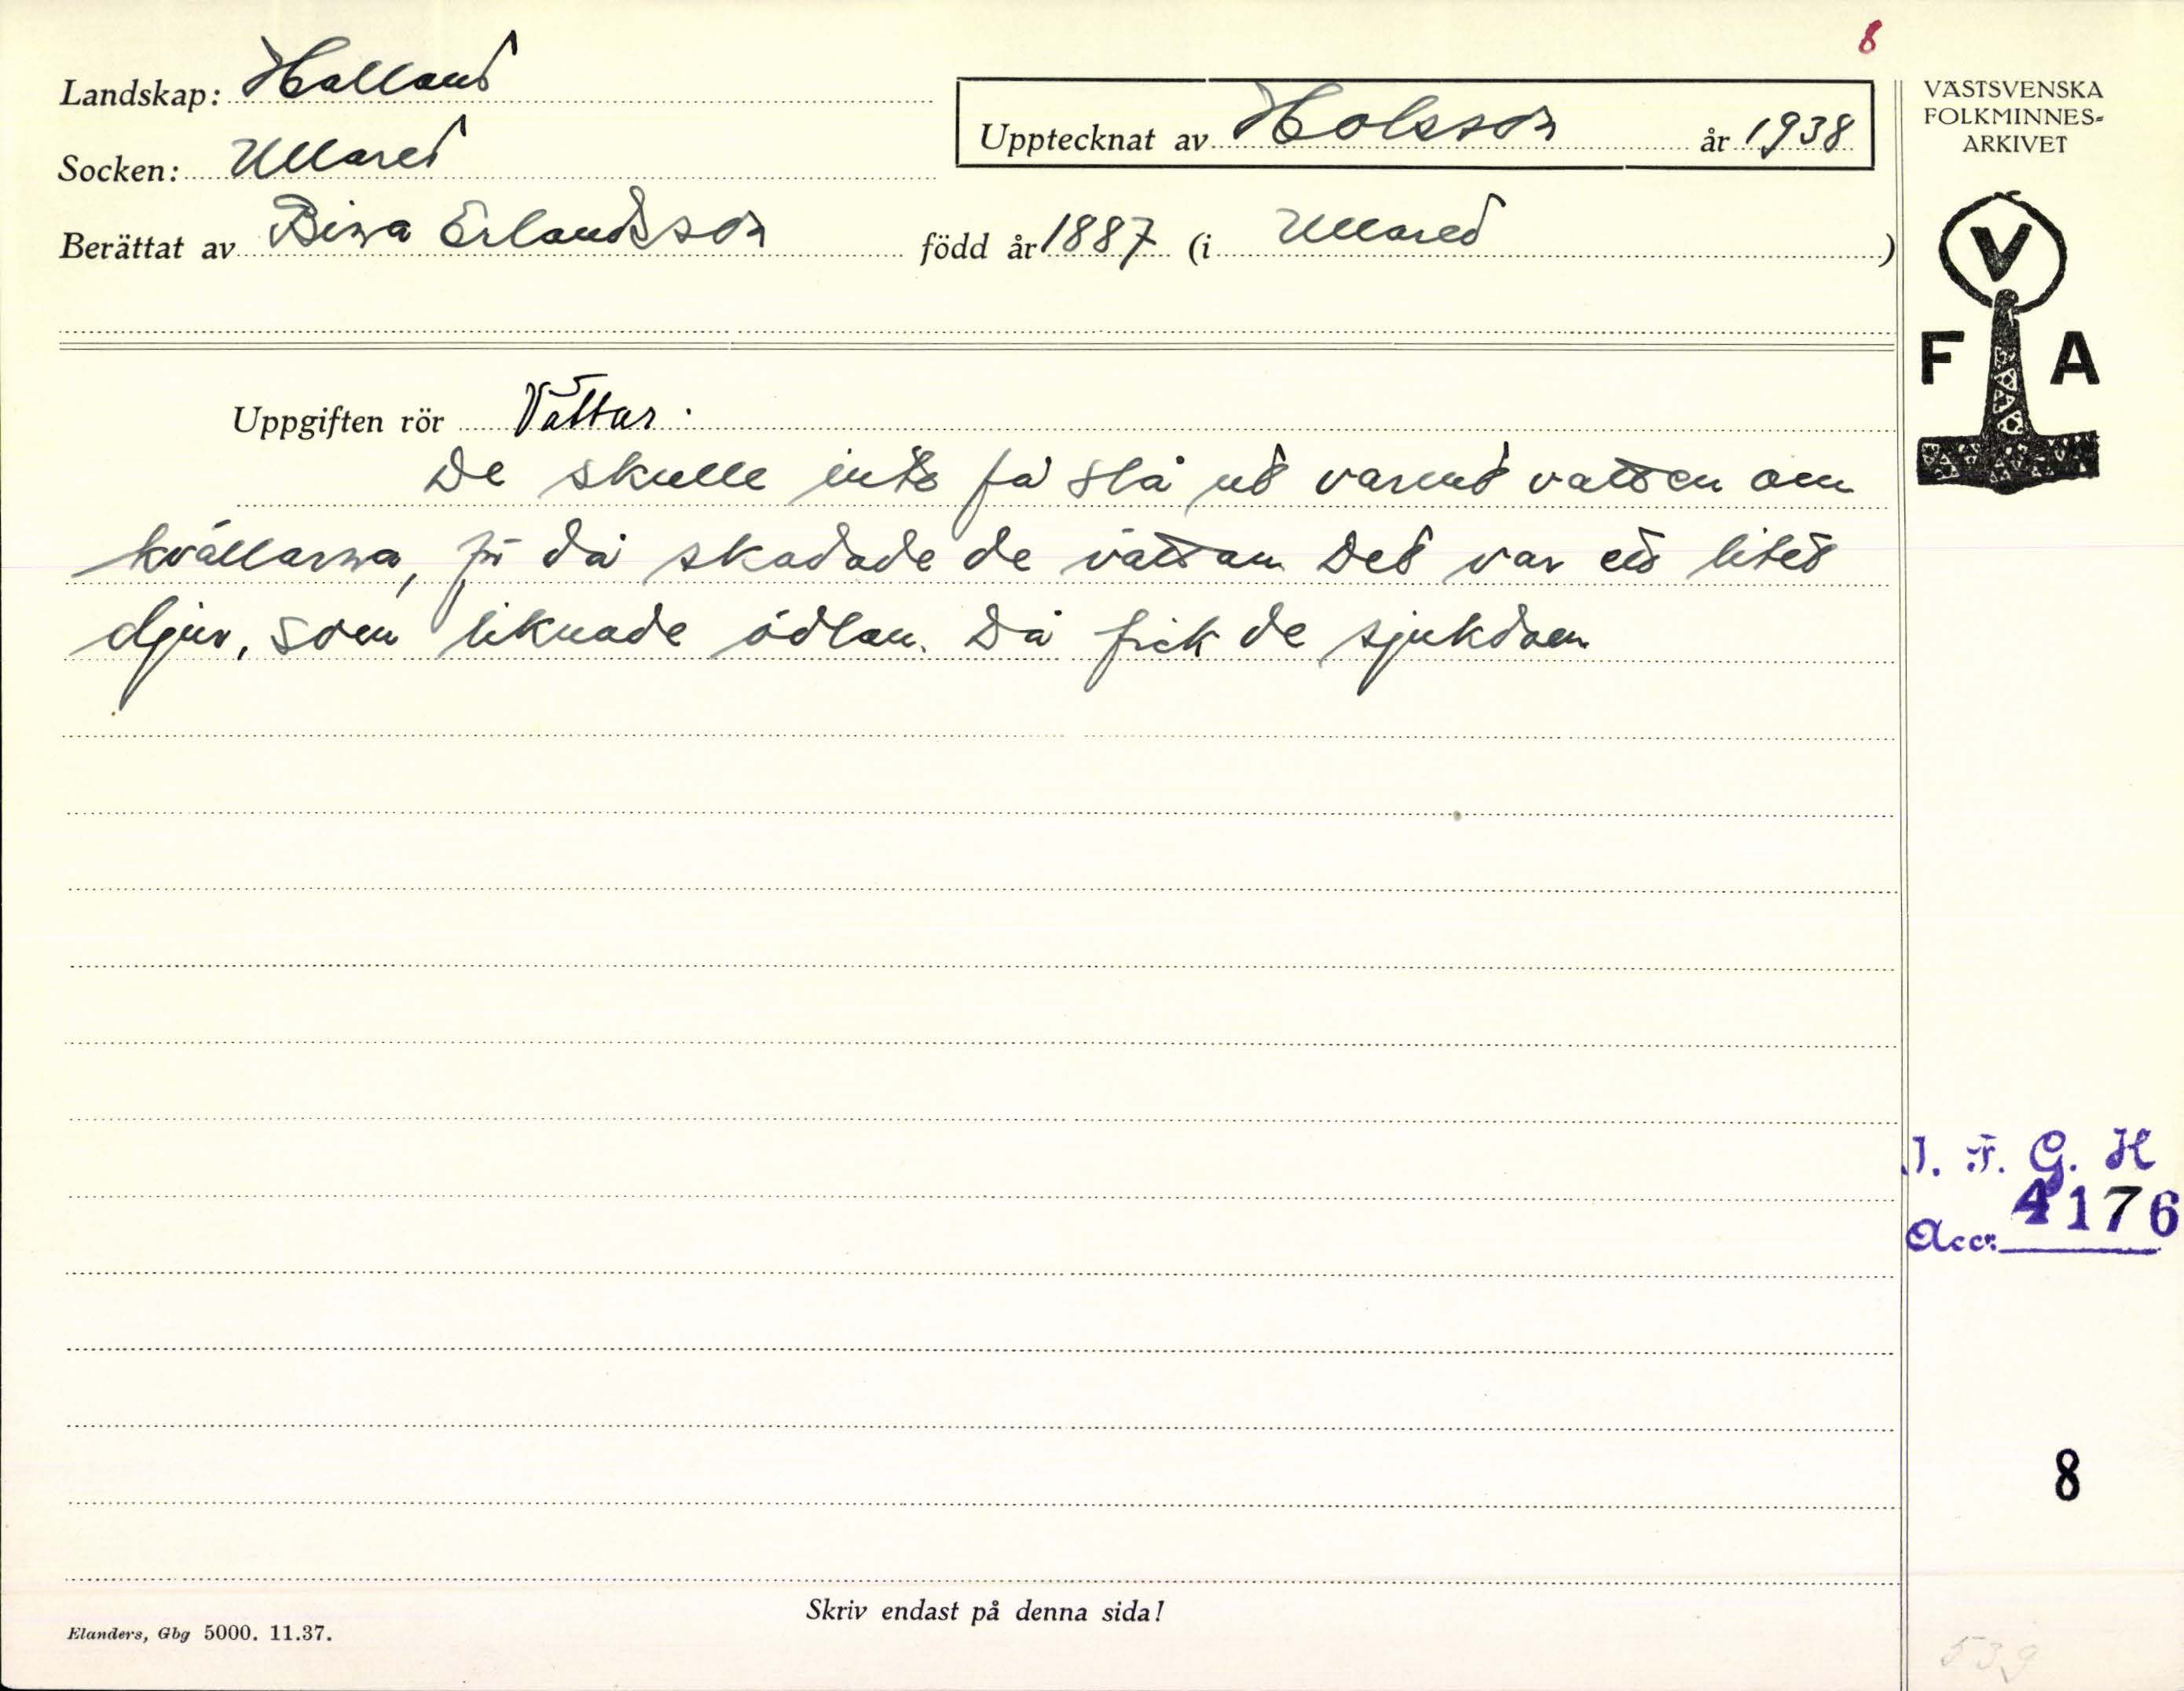 8
Landskap: Halland
Upptecknat av Holsson år 1938
VÄSTSVENSKA
FOLKMINNES-
ARKIVET
Socken: Ullared
Berättat av Bina Erlandsson född år 1887 (i Ullared)
V
F A
Uppgiften rör Vättar.
De skulle inte få slå ut varmt vatten om
kvällarna, för då skadade de vättan. Det var ett litet
djur, som liknade ödlan. Då fick de sjukdom
I. F. G. H
4176
Acc:
8
Skriv endast på denna sida!
Elanders, Gbg 5000. 11.37.
539